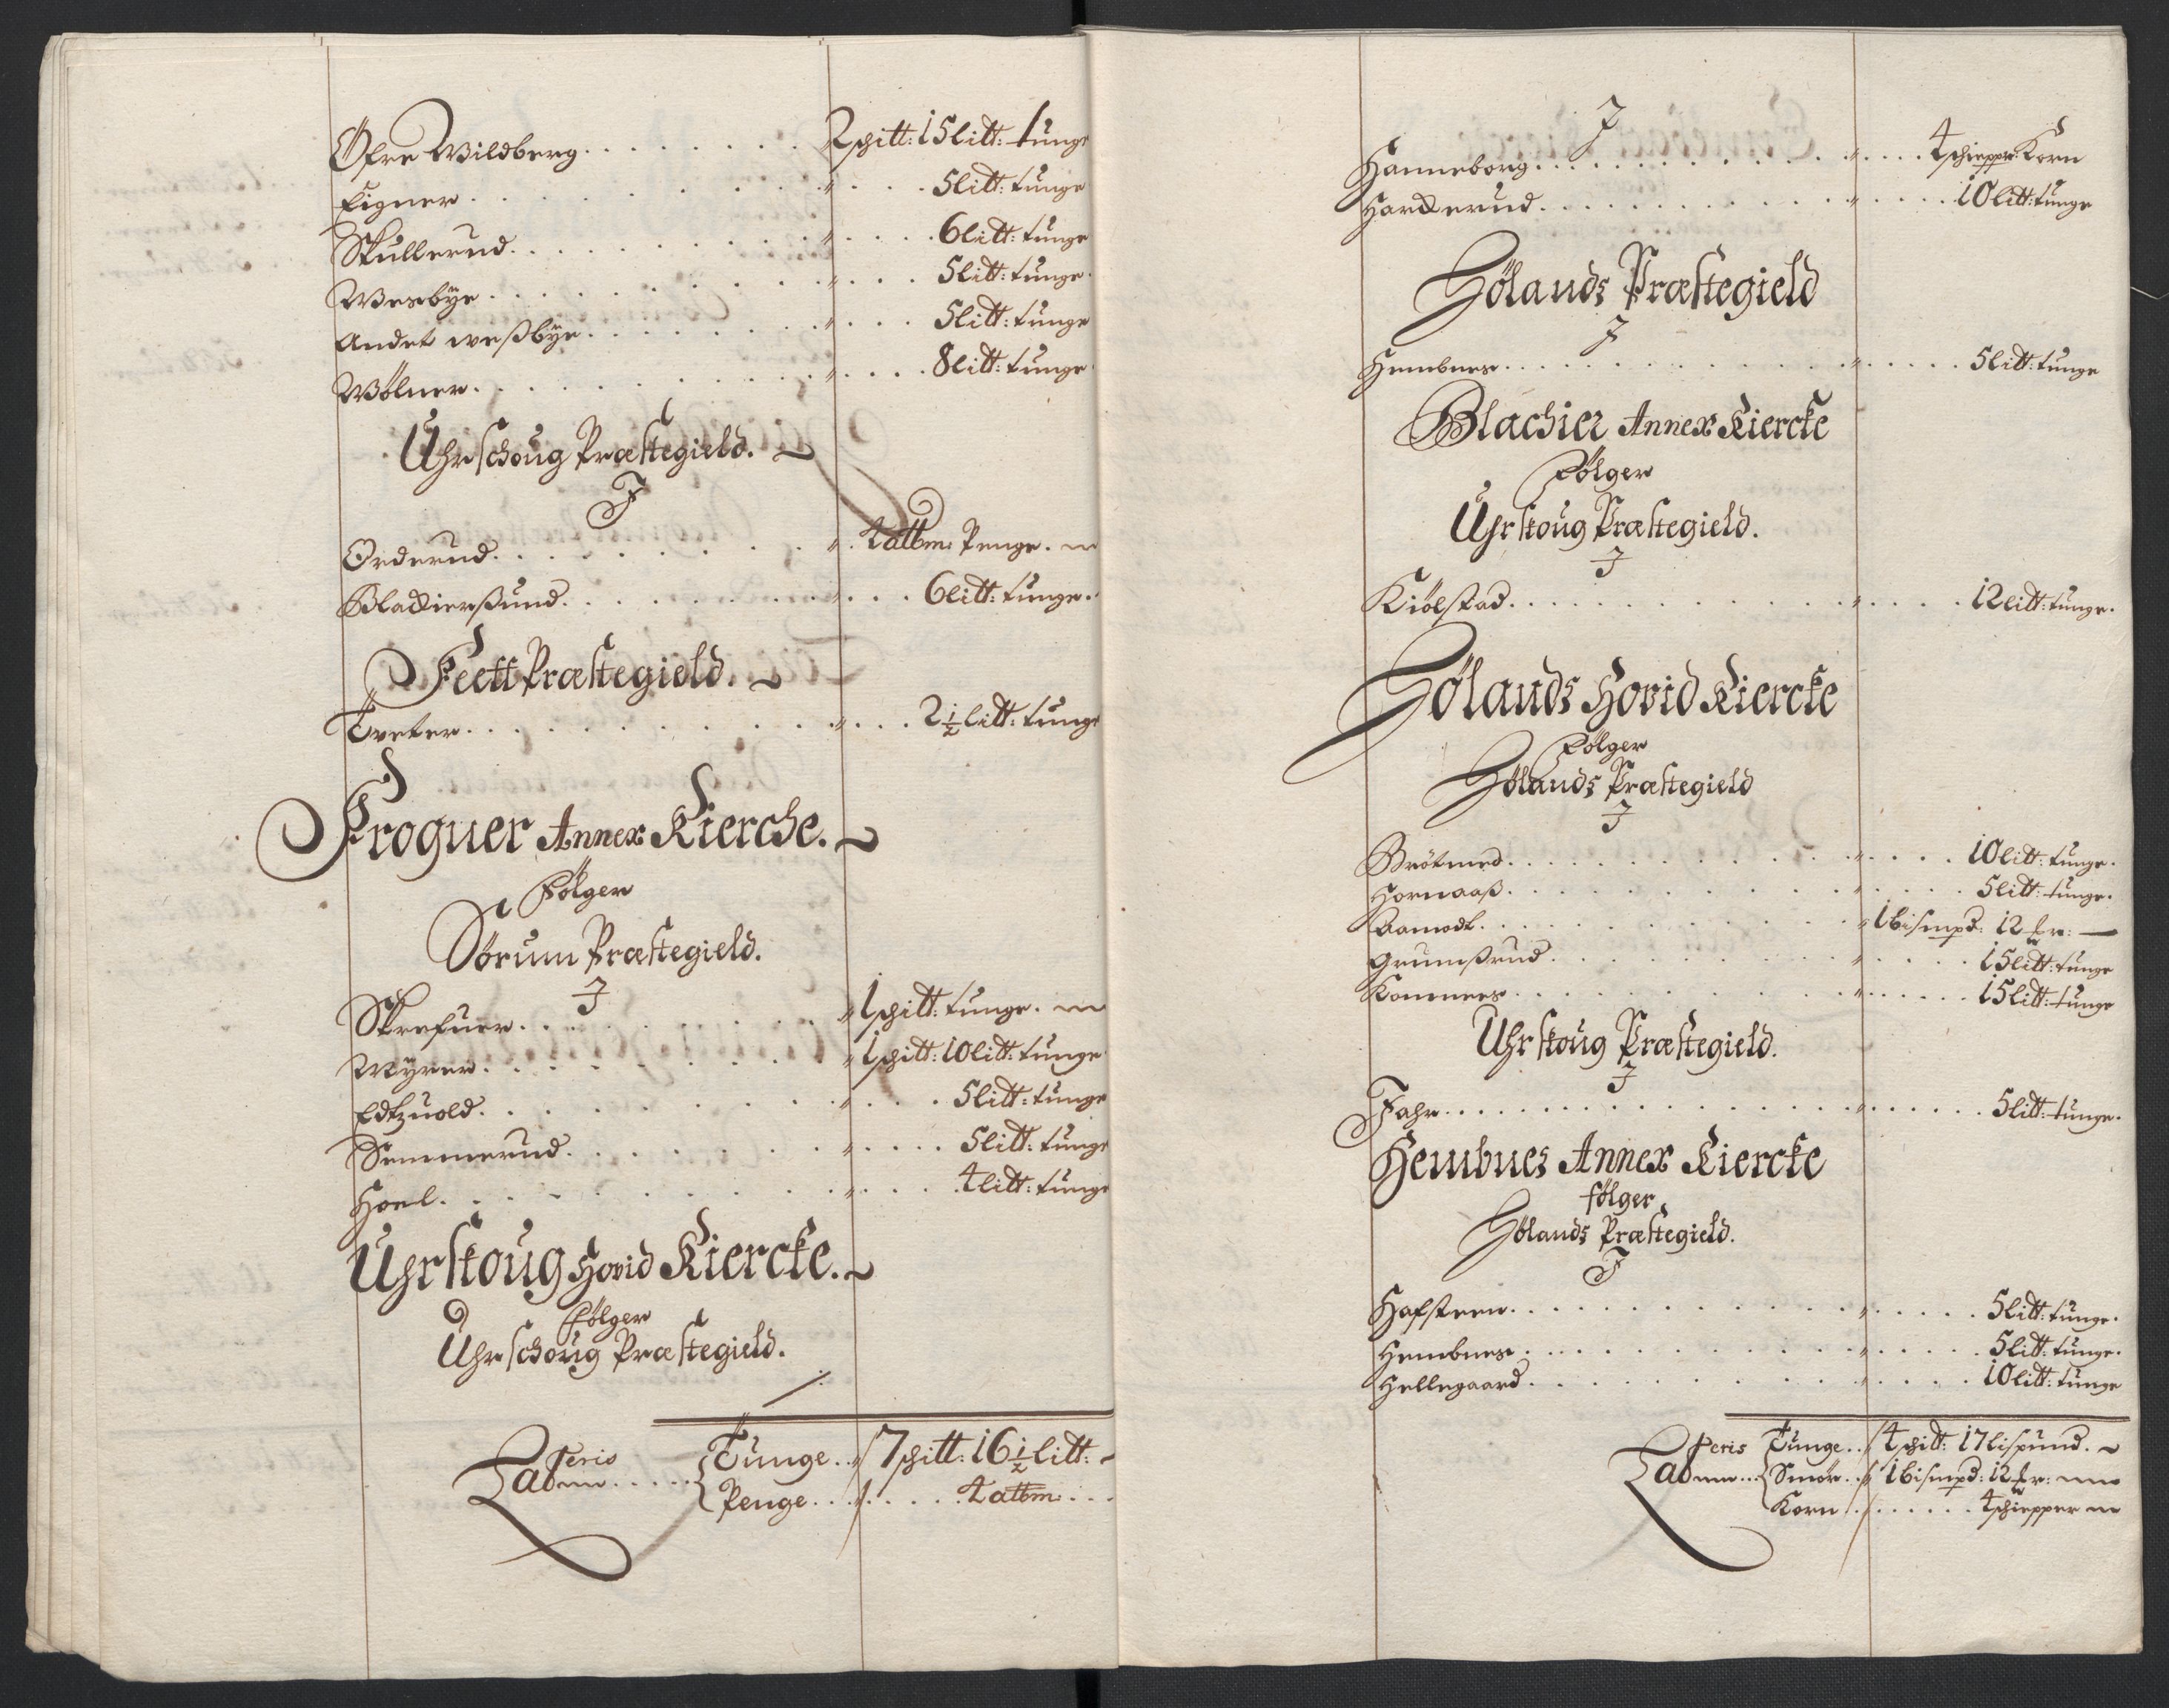 Øfre Wildberg . . . . . . . 2 schitt: 15 litt: tunge
Eigner . . . . . . . . " . . . 5 litt: tunge
Skullerud . . . . . . . . " . . . 6 litt: tunge
Wesebÿe . . . . . . . . " . . . 5 litt: tunge
Andet wessbÿe . . . . . . " . . . 5 litt: tunge
Wølner . . . . . . . . " . . . 8 litt: tunge
Uhrschoug Præstegield.
J
Orderud . . . . . . . . " . 4 alb m: Penge.
Blackiersund . . . . . . . " . . . 6 litt: tunge.
Feett Præstegield.
Tveter . . . . . . . . " . . . 2½ litt: tunge
Frogner Annex Kierche.
Følger
Sørum Præstegield.
J
Skrefuer . . . . . . . " 1 schitt: tunge.
Myrer . . . . . . . " 1 schitt: 10 litt: tunge
Edtzuold . . . . . . . " . . . 5 litt: tunge
Semmerud . . . . . . . " . . . 5 litt: tunge
Hoel . . . . . . . . " . . . 4 litt: tunge
Uhrskoug Hovid Kiercke.
Følger
Uhrschoug Præstegield.
Lateris
Tunge . . 7 schitt: 16½ litt:
Penge . . . . . . 4 alb m: . . .
J
Hanneborg . . . . . . . " . . . 4 schieppe Korn
Harckerud . . . . . . . " . . . 10 litt: tunge
Hølands Præstegield
J
Hembnes . . . . . . . . " . . . 5 litt: tunge
Blachier Annex Kiercke
Følger
Uhrskoug Præstegield.
J
Kiølstad . . . . . . . . " . . . 12 litt: tunge.
Hølands Hovid Kiercke
Følger
Hølands Præstegield
J
Brøtmed . . . . . . . . " . . . 10 litt: tunge.
Hornaas . . . . . . . . " . . . 5 litt: tunge.
Aamodt . . . . . . . . " 1 bismpd: 12 mr:
Grumsrud . . . . . . . " . . . 15 litt: tunge
Komnes . . . . . . . . " . . . 15 litt: tunge
Uhrskoug Præstegield.
J
Fahr . . . . . . . . " . . . 5 litt: tunge.
Hembnes Annex Kiercke
følger
Hølands Præstegield.
J
Hafsteen . . . . . . . . " . . . 5 litt: tunge.
Hembnes . . . . . . . . " . . . 5 litt: tunge.
Hellegaard . . . . . . . " . . . 10 litt: tunge
Lateris
Tunge . . 4 schitt: 17 lispund.
Smør . . 1 bismpd: 12 mr:
Korn . . . . . . 4 schiepper